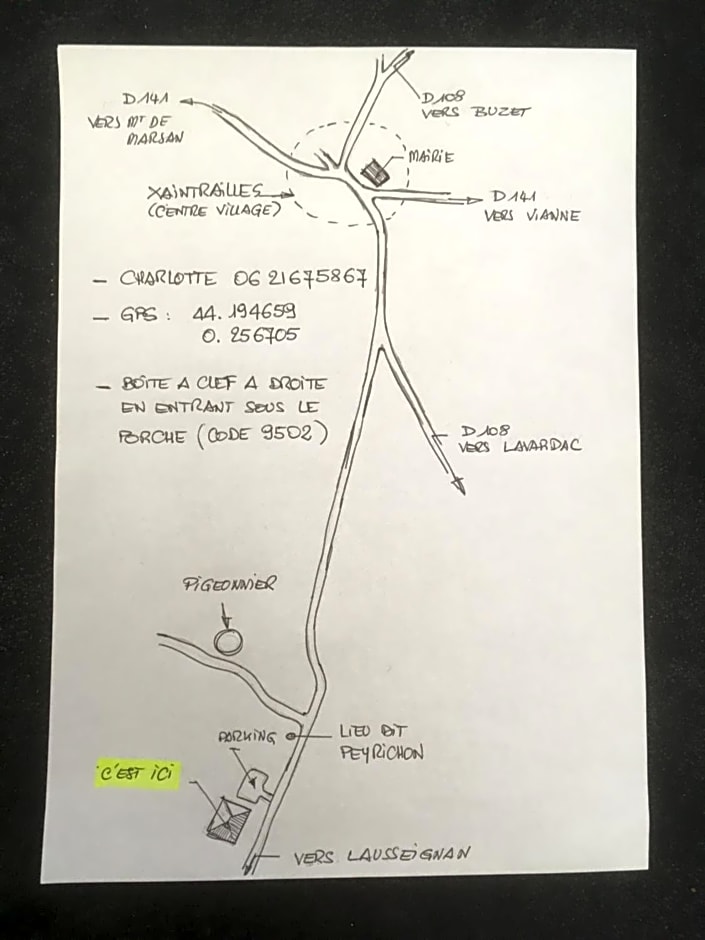 D.141
VERS Mᵗ DE
MARSAN
D.108
VERS BUZET
MAIRIE
XAINTRAILLES
(CENTRE VILLAGE)
D.141
VERS VIANNE
– CHARLOTTE 06 21675867
– GPS : 44.194659
0.256705
– BOÎTE A CLEF A DROITE
EN ENTRANT SOUS LE
PORCHE (CODE 9502)
D.108
VERS LAVARDAC
PIGEONNIER
PARKING
LIEU DIT
PEYRICHON
C'EST ICI
VERS LAUSSEIGNAN